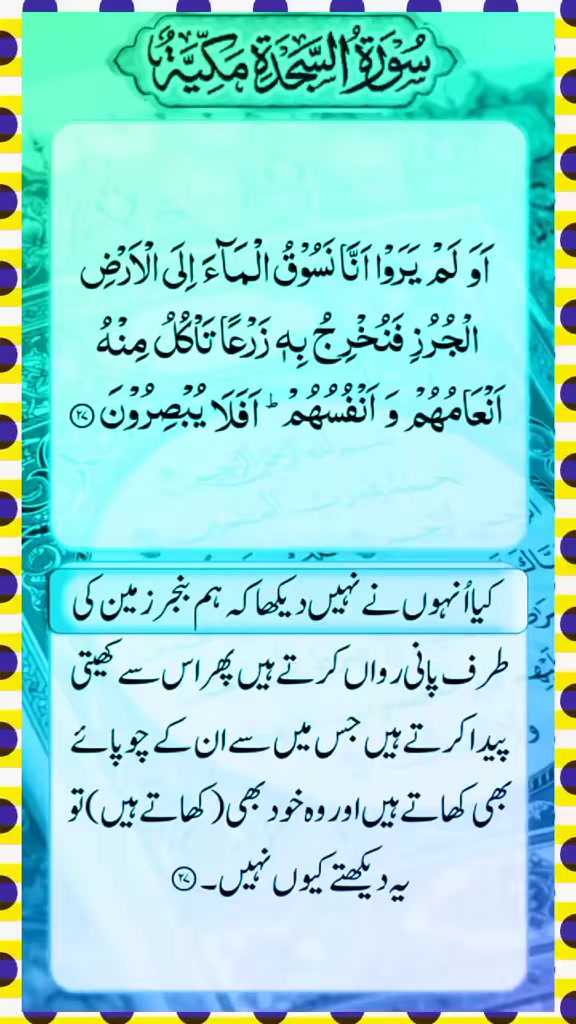 سُوْرَةُ السَّجْدَةِ مَكِّيَّةٌ
اَوَ لَمْ يَرَوْا اَنَّا نَسُوْقُ الْمَآءَ اِلَى الْاَرْضِ
الْجُرُزِ فَنُخْرِجُ بِهٖ زَرْعًا تَاْكُلُ مِنْهُ
اَنْعَامُهُمْ وَ اَنْفُسُهُمْ ؕ اَفَلَا يُبْصِرُوْنَ ۲۷
کیا اُنہوں نے نہیں دیکھا کہ ہم بنجر زمین کی
طرف پانی رواں کرتے ہیں پھر اس سے کھیتی
پیدا کرتے ہیں جس میں سے ان کے چوپائے
بھی کھاتے ہیں اور وہ خود بھی (کھاتے ہیں) تو
یہ دیکھتے کیوں نہیں۔ ۲۷